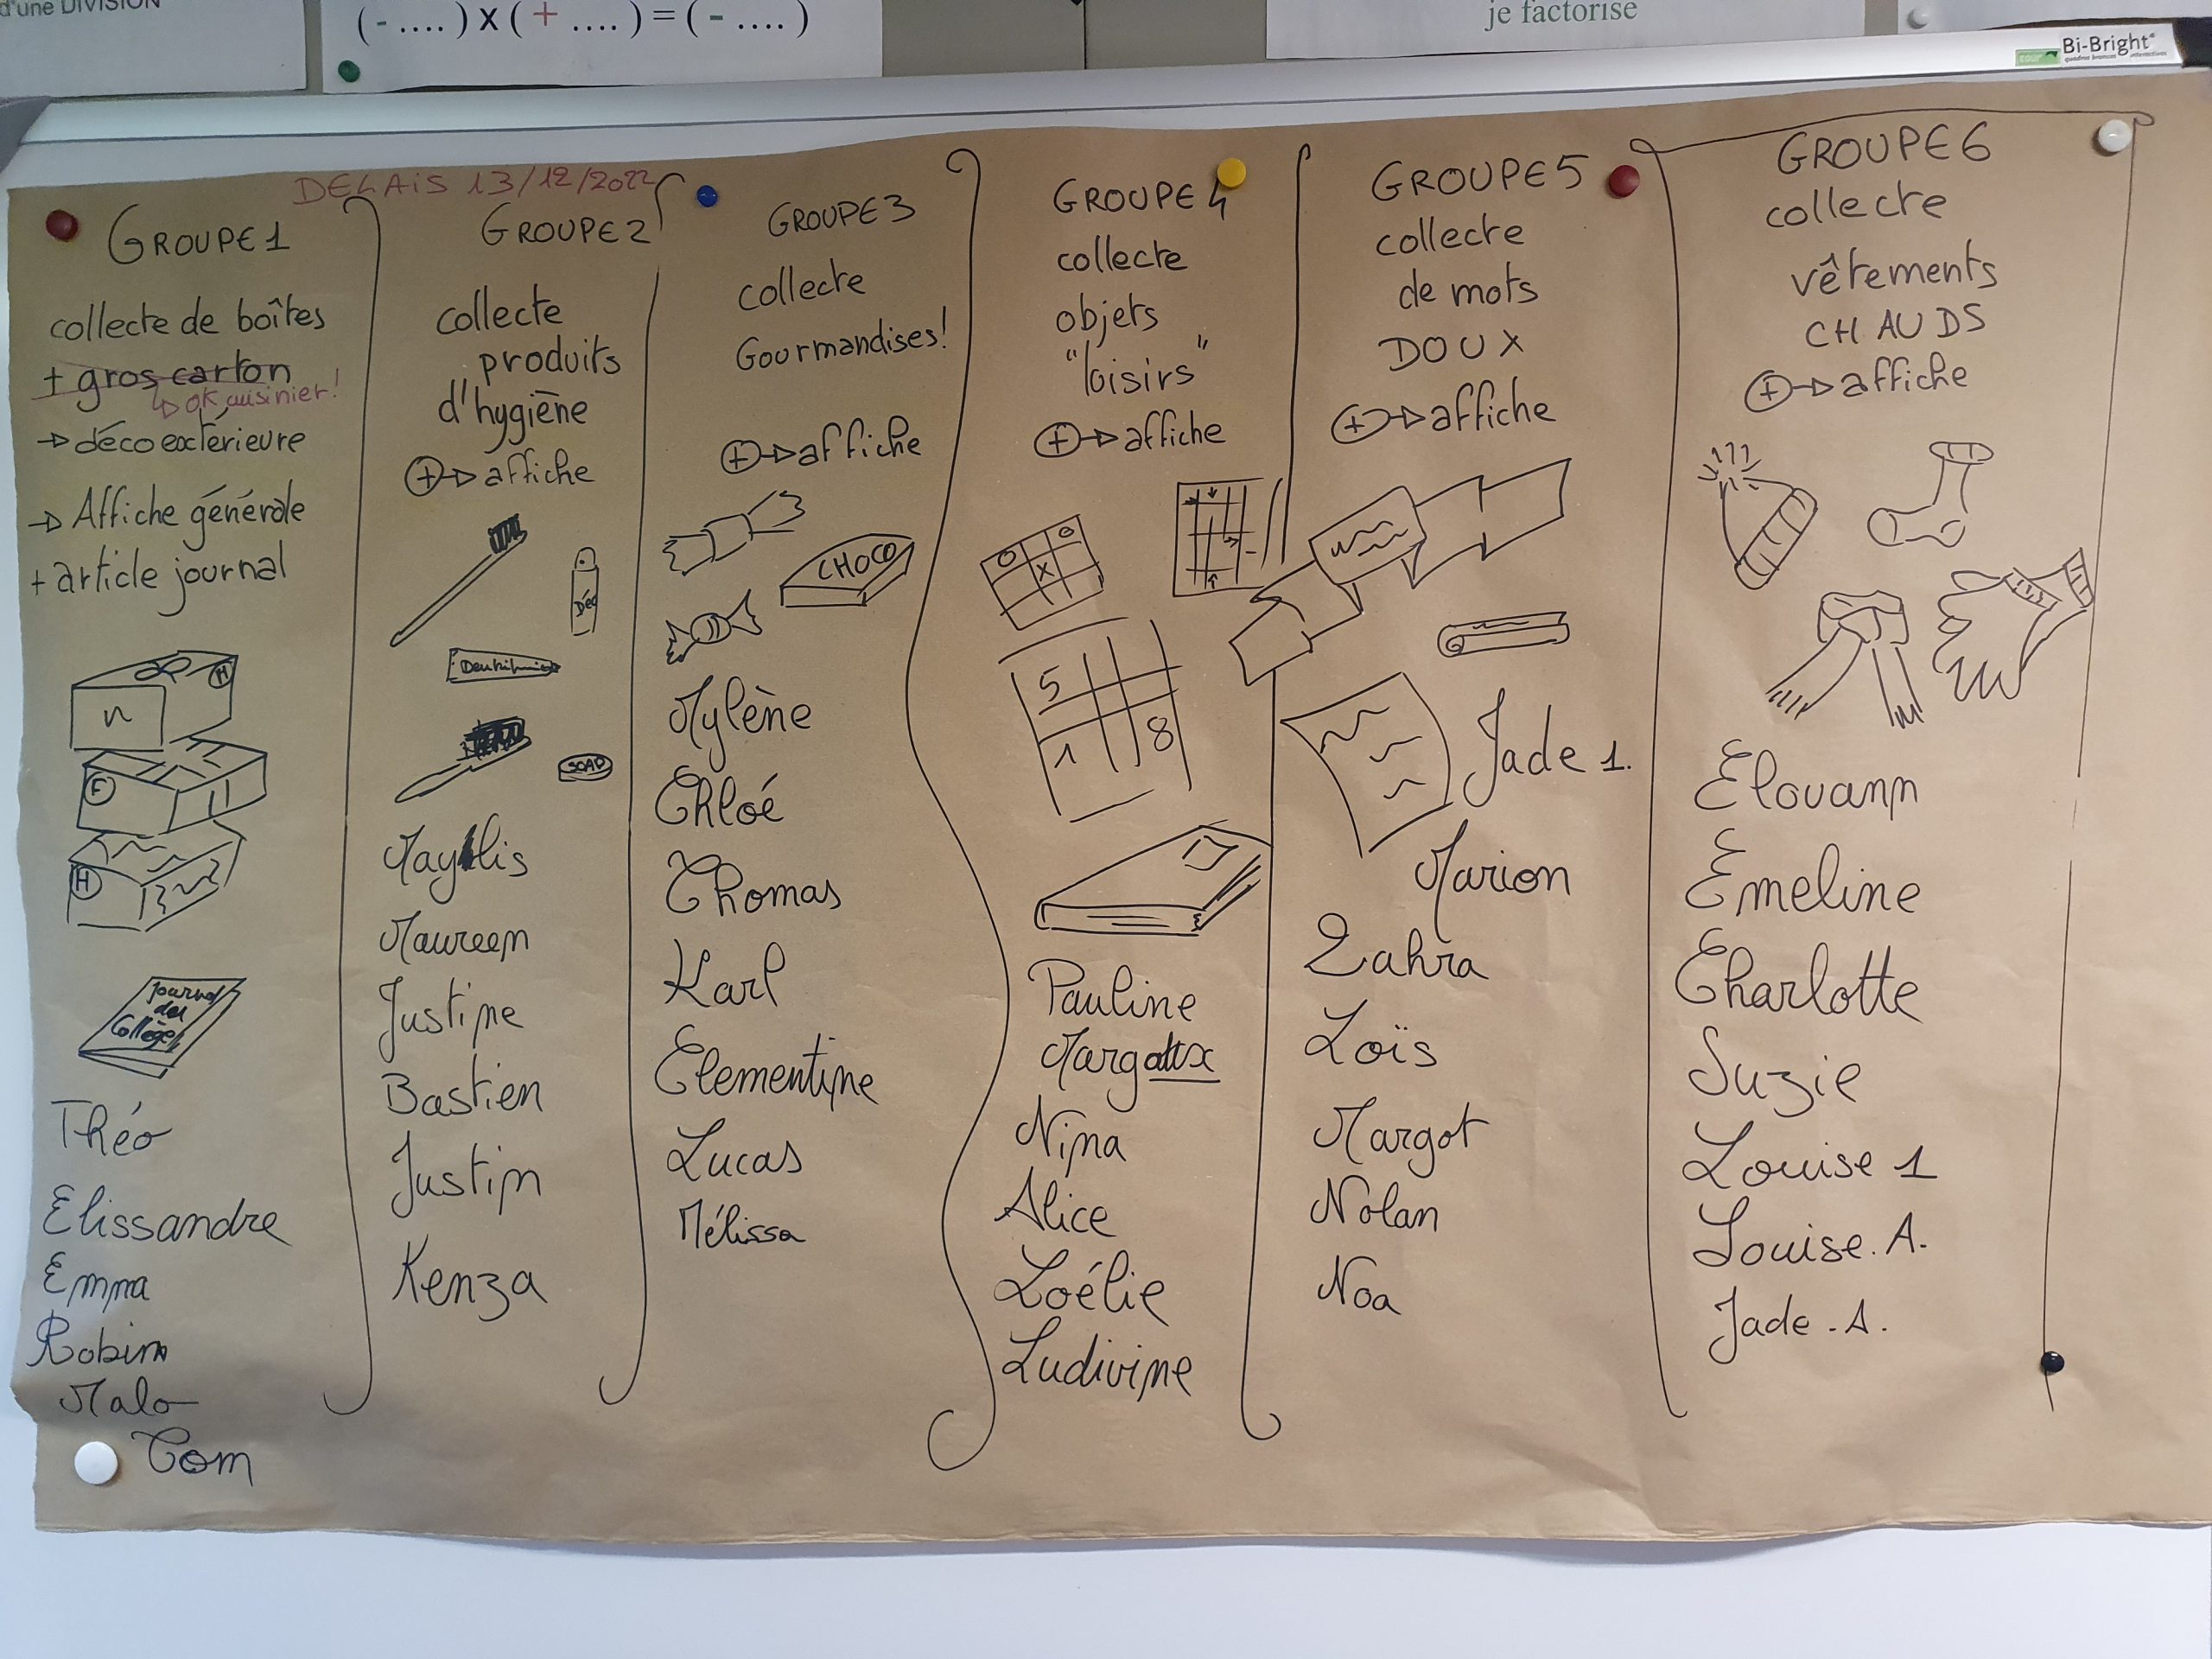 d'une DIVISION
(- ....) x (+ ....) = (- ....)
je factorise
Bi-Bright
DELAIS 13/12/2022
GROUPE 1
collecte de boîtes
+ gros carton
OK cuisinier!
déco extérieure
Affiche générale
+ article journal
H
F
H
Journal
des
Collèges
Théo
Elissandre
Emma
Robin
Malo
Tom
GROUPE 2
collecte
produits
d'hygiène
+ affiche
Déo
Dentifrice
SOAP
Maylis
Maureen
Justine
Bastien
Justin
Kenza
GROUPE 3
collecte
Gourmandises!
+ affiche
CHOCO
Mylène
Chloé
Thomas
Karl
Clementine
Lucas
Mélissa
GROUPE 4
collecte
objets
"loisirs"
+ affiche
O O
X
5
1 8
Pauline
Margaux
Nina
Alice
Loélie
Ludivine
GROUPE 5
collecte
de mots
DOUX
+ affiche
Jade 1.
Marion
Zahra
Loïs
Margot
Nolan
Noa
GROUPE 6
collecte
vêtements
CHAUDS
+ affiche
Elouann
Emeline
Charlotte
Suzie
Louise 1
Louise. A.
Jade. A.